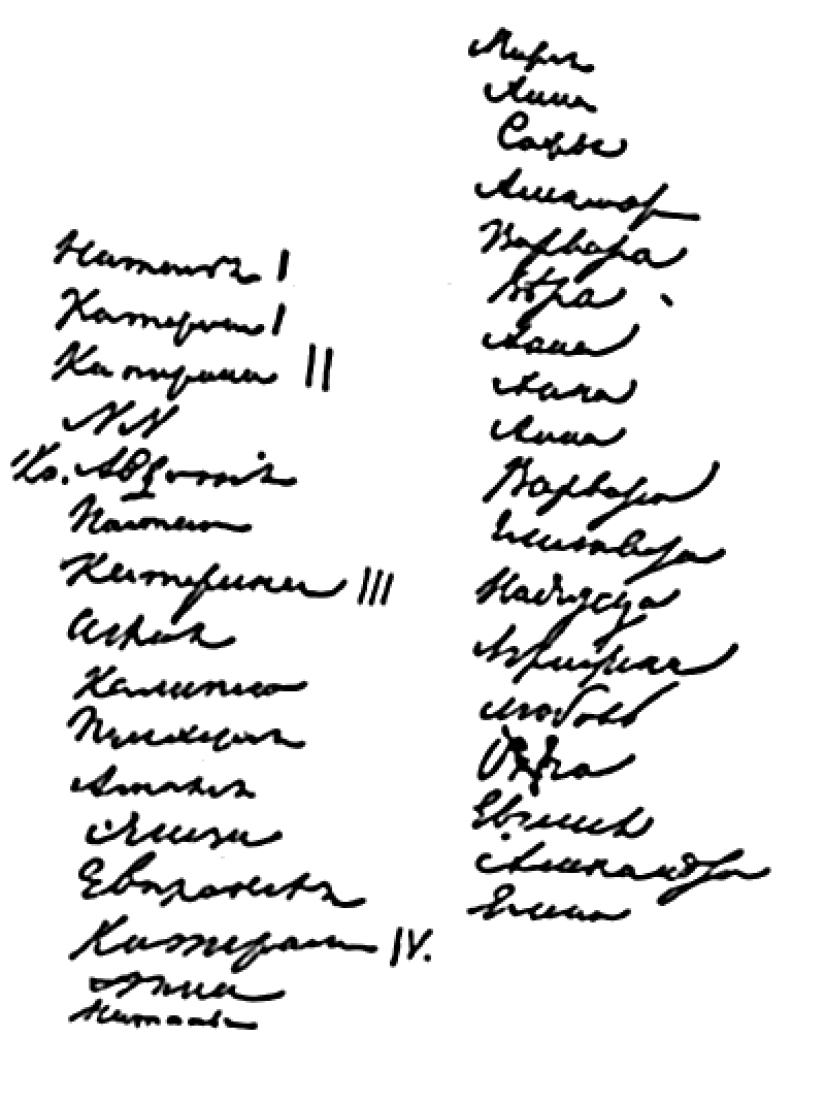 Наталья I
Катерина I
Катерина II
NN
Кн. Авдотия
Настасья
Катерина III
Аглая
Калипсо
Пульхерия
Амалия
Элиза
Евпраксея
Катерина IV.
Анна
Наталья
Мария
Анна
Софья
Александра
Варвара
Вера
Анна
Анна
Анна
Варвара
Елизавета
Надежда
Аграфена
Любовь
Ольга
Евгения
Александра
Елена